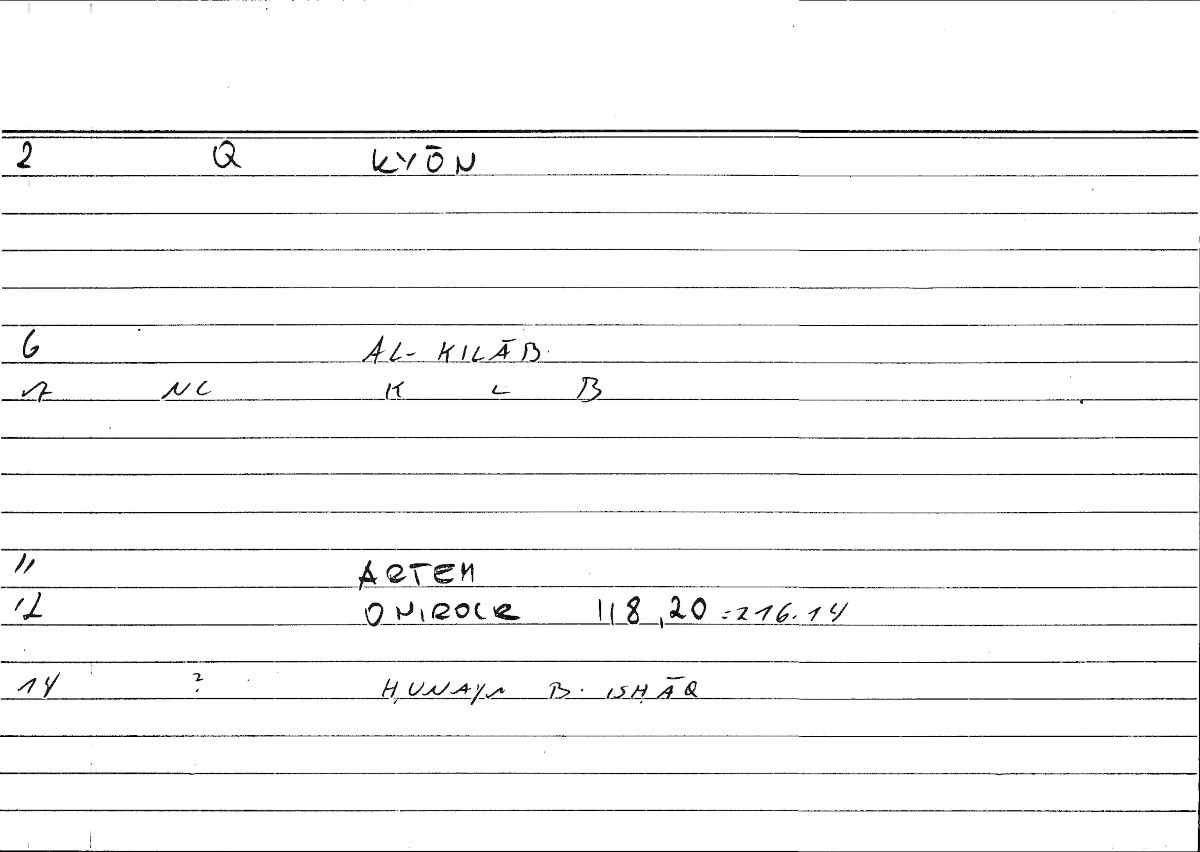 2 Q KYŌN
6 AL- KILĀB
7 NC K L B
11 ARTEM
12 ONIROCR 118,20 = 216.14
14 ? ḤUNAYN B. ISḤĀQ